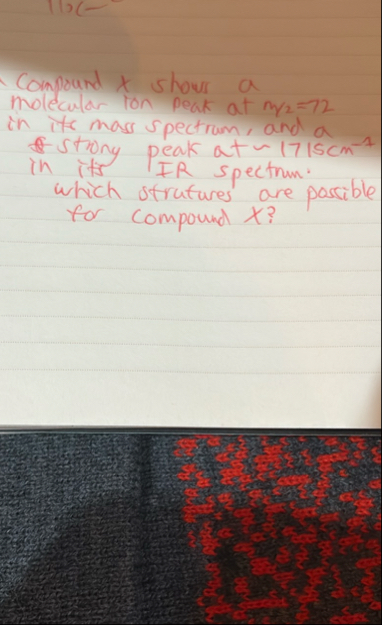 Compound X shows a
molecular ion peak at m/z=72
in its mass spectrum, and a
strong peak at ~ 1715cm⁻¹
in its IR spectrum.
which strutures are possible
for compound X?